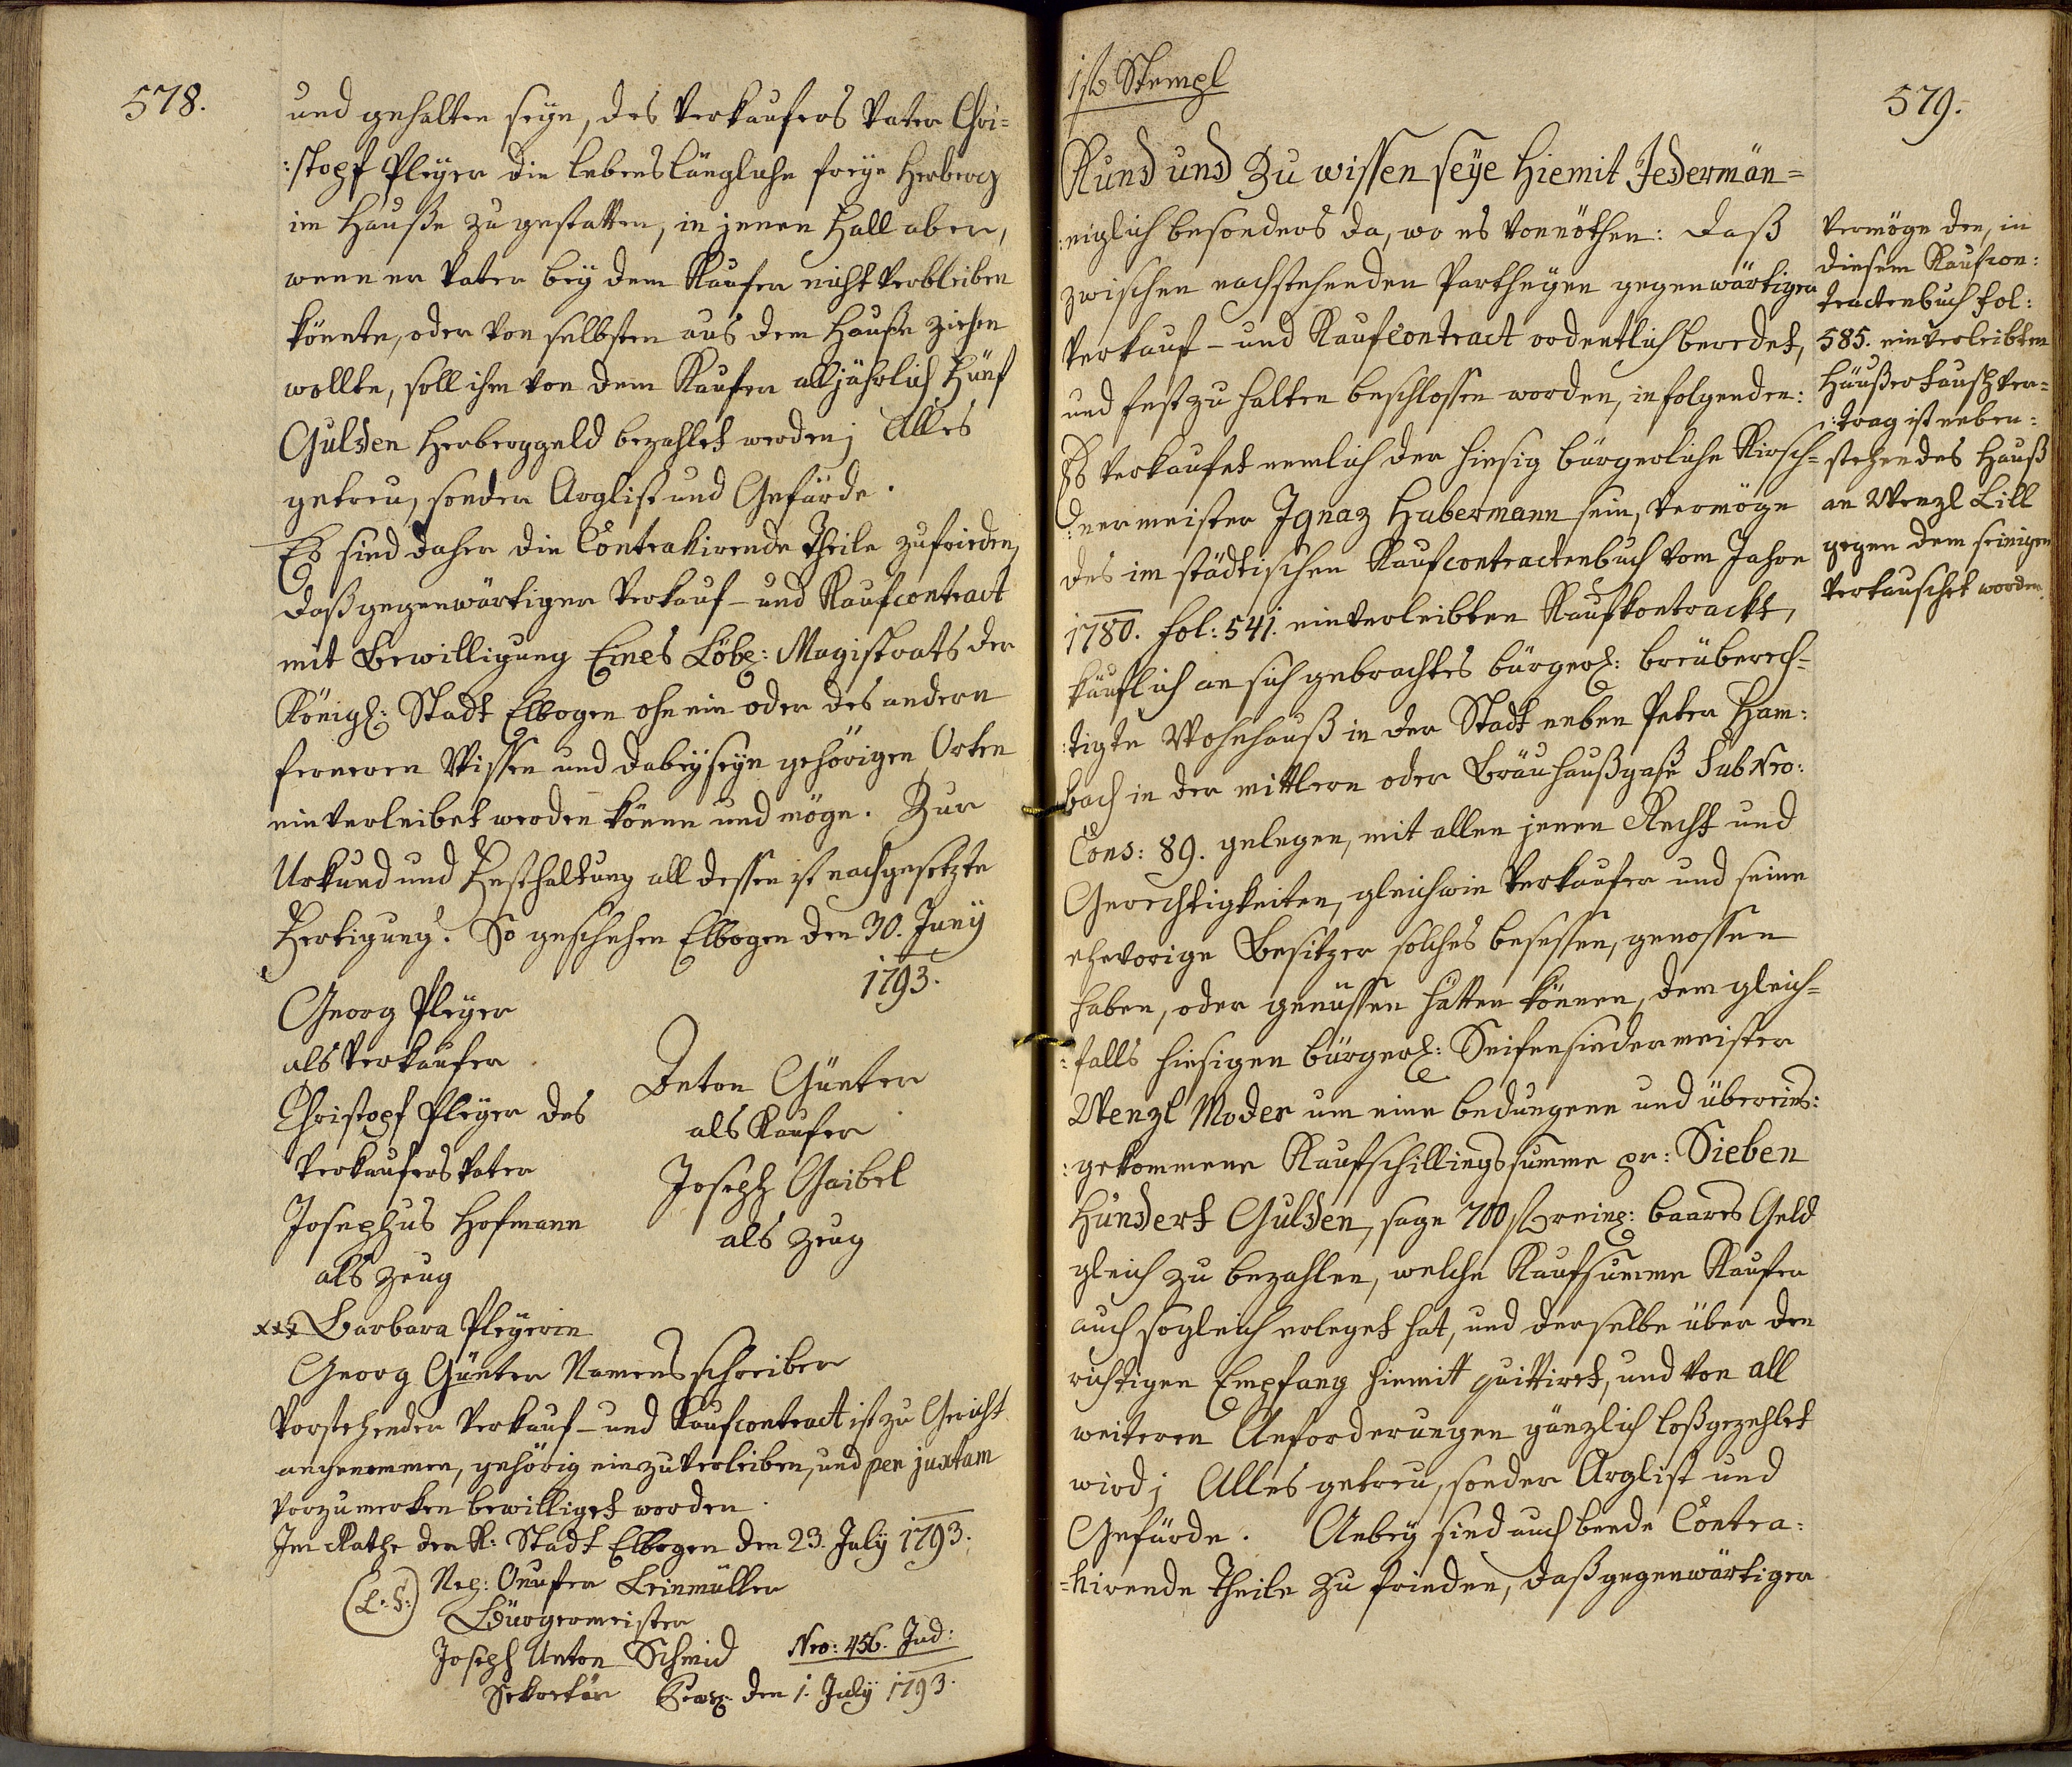 578.
und gehalten seyn, des Verkaufers Vater Chri=
:stopf Pleyer die lebenslängliche freye Herberg
im Hauße zu gestatten, in jenen Fall aber,
wenn er Vater bey dem Kaufer nicht verbleiben
könnte, oder von selbsten aus dem Hauße ziehen
wollte, soll ihm von dem Kaufer alljährlich Fünf
Gulden Herberggeld bezahlet werden; Alles
getreu, sonder Arglist und Gefärde.
Es sind daher die Contrahirende Theile zufrieden,
daß gegenwärtiger Verkauf- und Kaufcontract
mit Bewilligung Eines Löbl: Magistrats der
Königl: Stadt Elbogen ohn ein oder des andern
ferneren Wissen und dabeyseyn gehörigen Orten
einverleibet werden könne und möge. Zur
Urkund und Festhaltung all dessen ist nachgesetzte
Fertigung. So geschehen Elbogen den 30. Juny
1793.
Georg Pleyer
als Verkaufer
Christopf Pleyer des
Verkaufers Vater
Josephus Hofmann
als Zeug
Anton Günter
als Kaufer
Joseph Gaibel
als Zeug
xxx Barbara Pleyerin
Georg Günter Namensschreiber
Vorstehender Verkauf- und Kaufcontract ist zu Gericht
angenommen, gehörig einzuverleiben, und per juxtam
vorzumerken bewilliget worden.
Im Rathe der K: Stadt Elbogen den 23. July 1793.
(L: S:) Leinmüller
Bürgermeister
Joseph Anton Schmid
Sekretär
Nro: 456. Jud:
den 1. July 1793.
Stempl
579.
Kund und Zu wissen seye Hiemit Jedermän=
:niglich besonders da, wo es vonnöthen: daß
zwischen nachstehenden Partheyen gegenwärtiger
Verkauf- und Kaufcontract ordentlich beredet,
und fest zu halten beschlossen worden, in folgenden:
Es verkaufet nemlich der hiesig bürgerliche Kirsch=
:nermeister Ignaz Habermann sein, vermöge
des im städtischen Kaufcontractenbuch vom Jahre
1780. fol: 541. einverleibten Kaufkontrackt,
käuflich an sich gebrachtes bürgerl: breüberech=
:tigte Wohnhauß in der Stadt neben Peter Ham:
bach in der mittlern oder Bräuhaußgaße Sub Nro:
Cons: 89. gelegen, mit allen jenen Recht und
Gerechtigkeiten, gleichwie Verkaufer und seine
ehevorige Besitzer solches besessen, genossen
haben, oder genüssen hätten können, dem gleich=
:falls hiesigen bürgerl: Seifensiedermeister
Wenzl Moder um eine bedungene und übereins:
:gekommene Kaufschillingssumme pr: Sieben
Hundert Gulden, sage 700 f baares Geld
gleich zu bezahlen, welche Kaufsumme Kaufer
auch sogleich erleget hat, und derselbe über den
richtigen Empfang hiemit quittiret, und von all
weiteren Anforderungen gänzlich loßgezehlet
wird; Alles getreu, sonder Arglist und
Gefärde. Anbey sind auch beede Contra:
=hirende Theile zu frieden, daß gegenwärtiger
Vermöge den, in
diesem Kaufcon:
tractenbuch fol:
585. einverleibten
Häußertauschver=
:trag ist neben:
stehendes Hauß
an Wenzl Lill
gegen dem seinigen
vertauschet worden.